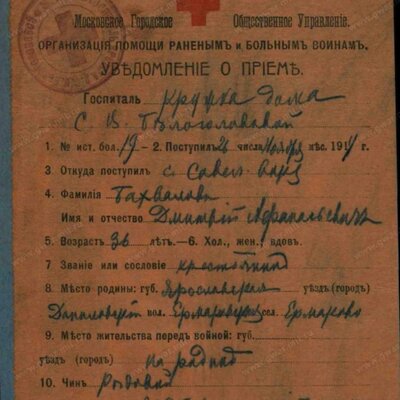 Московское Городское Общественное Управленіе.
ОРГАНИЗАЦІЯ ПОМОЩИ РАНЕНЫМЪ и БОЛЬНЫМЪ ВОИНАМЪ.
УВѢДОМЛЕНІЕ О ПРІЕМѢ.
Госпиталь Кружка дома
С. В.
1. № ист. бол. 19 – 2. Поступил 26 числа Ноября мѣс. 1914 г.
3. Откуда поступил с вокз
4. Фамилія Бахваловъ
Имя и отчество Дмитрій Афанасьевичъ
5. Возраст 36 лѣт.—6. Хол., жен., вдов.
7. Званіе или сословіе крестьянин
8. Мѣсто родины: губ. Ярославская уѣзд (город)
Даниловскій вол. Ермаковская сел. Ермаково
9. Мѣсто жительства перед войной: губ.
уѣзд (город) на родинѣ
10. Чинъ рядовой